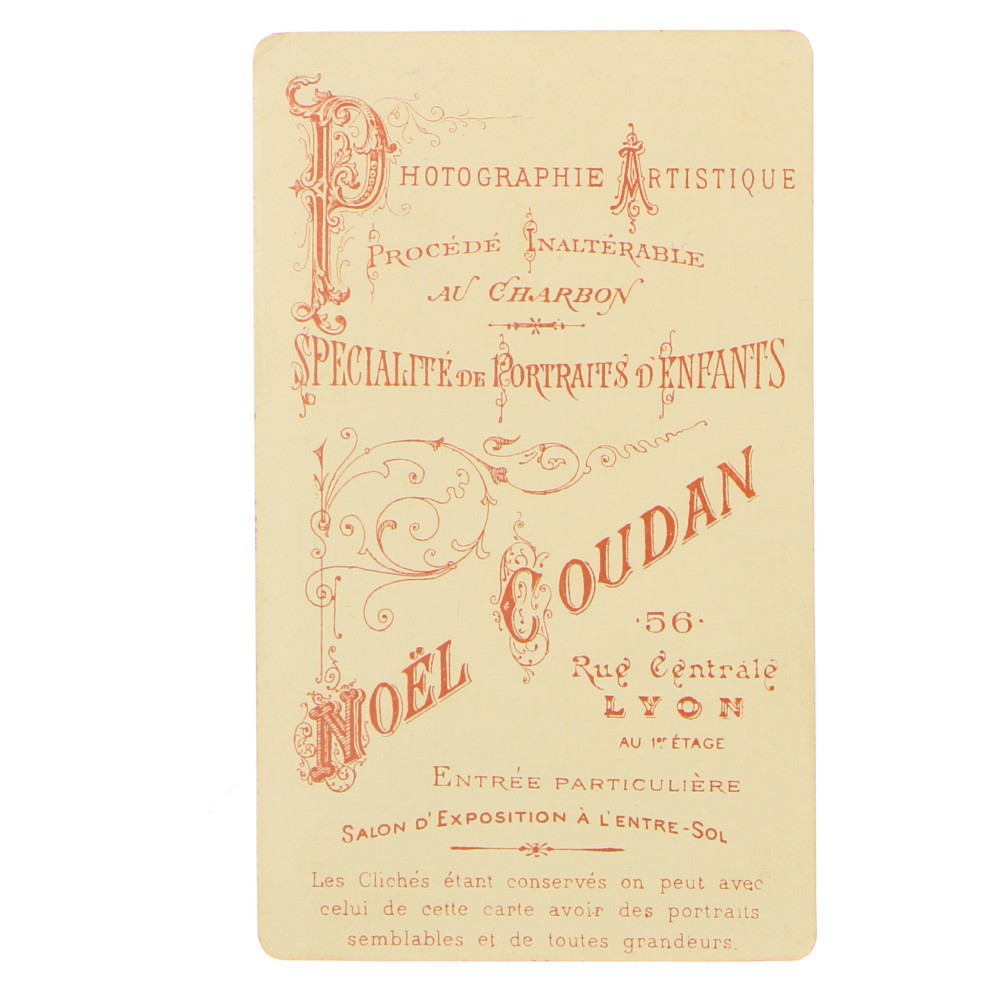 PHOTOGRAPHIE ARTISTIQUE
PROCÉDÉ INALTÉRABLE
AU CHARBON
SPECIALITÉ DE PORTRAITS D'ENFANTS
NOËL COUDAN
·56·
Rue Centrale
LYON
AU 1er ÉTAGE
ENTRÉE PARTICULIÈRE
SALON D'EXPOSITION À L'ENTRE-SOL
Les Clichés étant conservés on peut avec
celui de cette carte avoir des portraits
semblables et de toutes grandeurs.